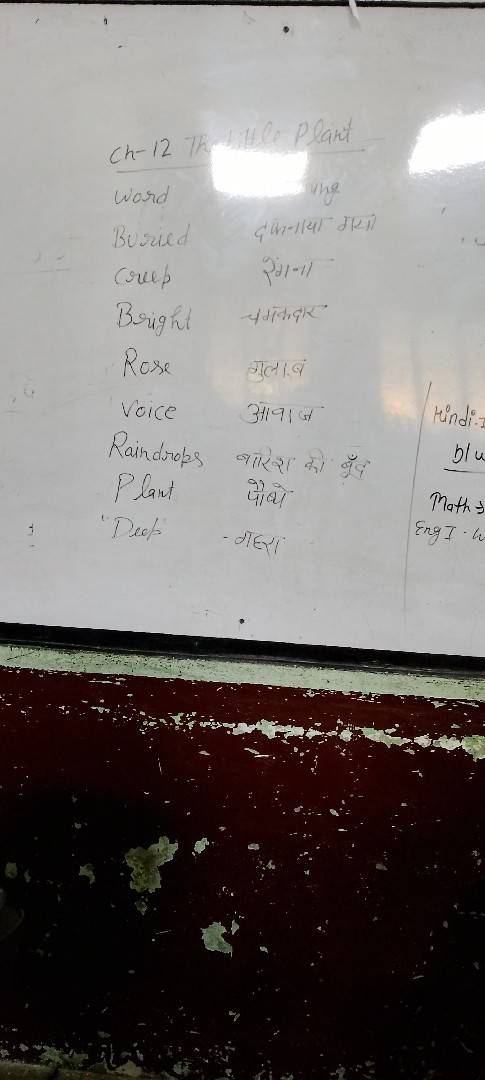 Ch-12 The Little Plant
Word
Buried दफनाया गया
Creep रेंगना
Bright चमकदार
Rose गुलाब
Voice आवाज
Raindrops बारिश की बूँद
Plant पौधे
"Deep - गहरा
Hindi-I
Math
Eng I -